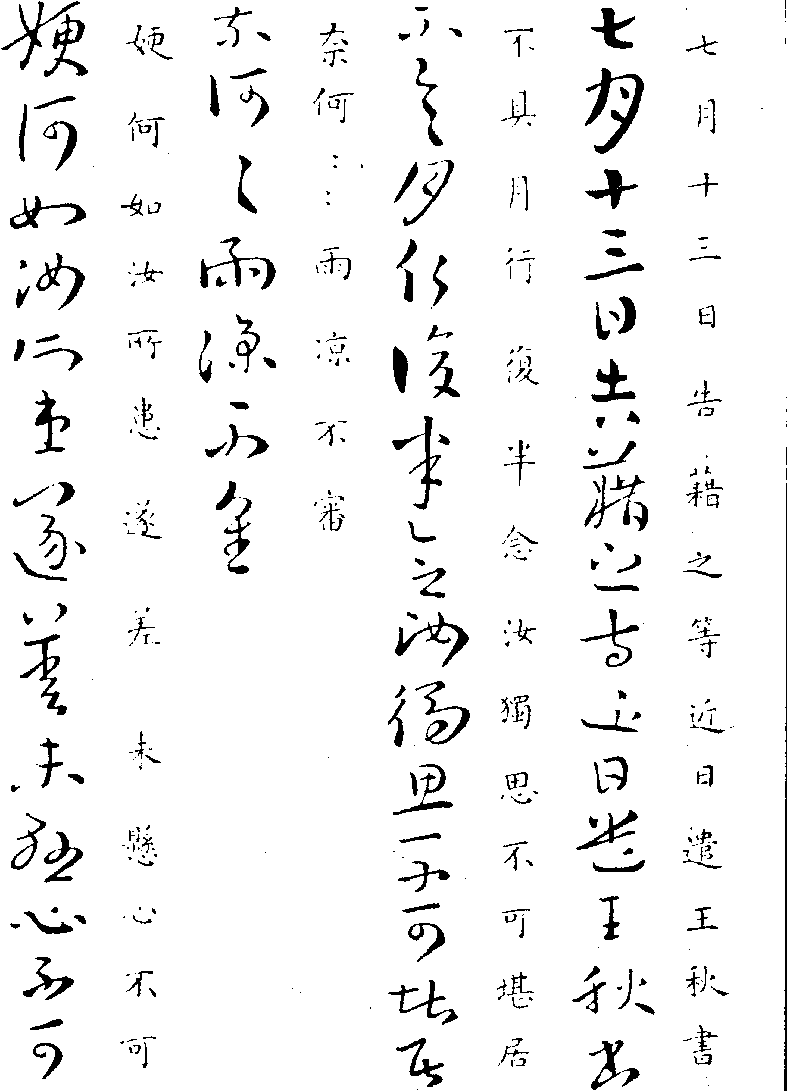 七月十三日告藉之等近日遣王秋書
七月十三日告藉之等近日遣王秋書
不具月行復半念汝獨思不可堪居
不具月行復半念汝獨思不可堪居
奈何〻〻雨凉不審
奈何〻〻雨凉不審
㛐何如汝所患遂差未懸心不可
㛐何如汝所患遂差未懸心不可